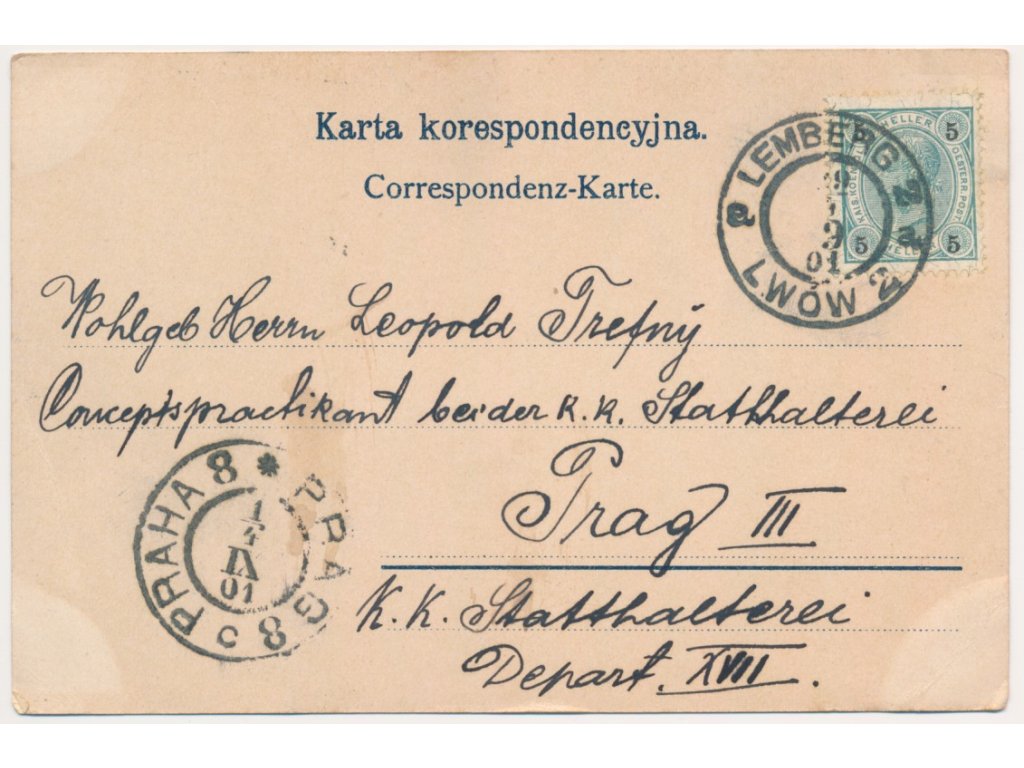 Karta korespondencyjna.
Correspondenz-Karte.
LEMBERG 2
LWÓW 2
9
01
5 HELLER 5
KAIS. KOEN. OESTERR. POST.
5 HELLER 5
Wohlgeb Herrn Leopold Trefný
Conceptspractikant bei der K.K. Statthalterei
Prag III
K.K. Statthalterei
Depart. XVII.
PRAHA 8 * PRAG 8 c
1
4
IX
01